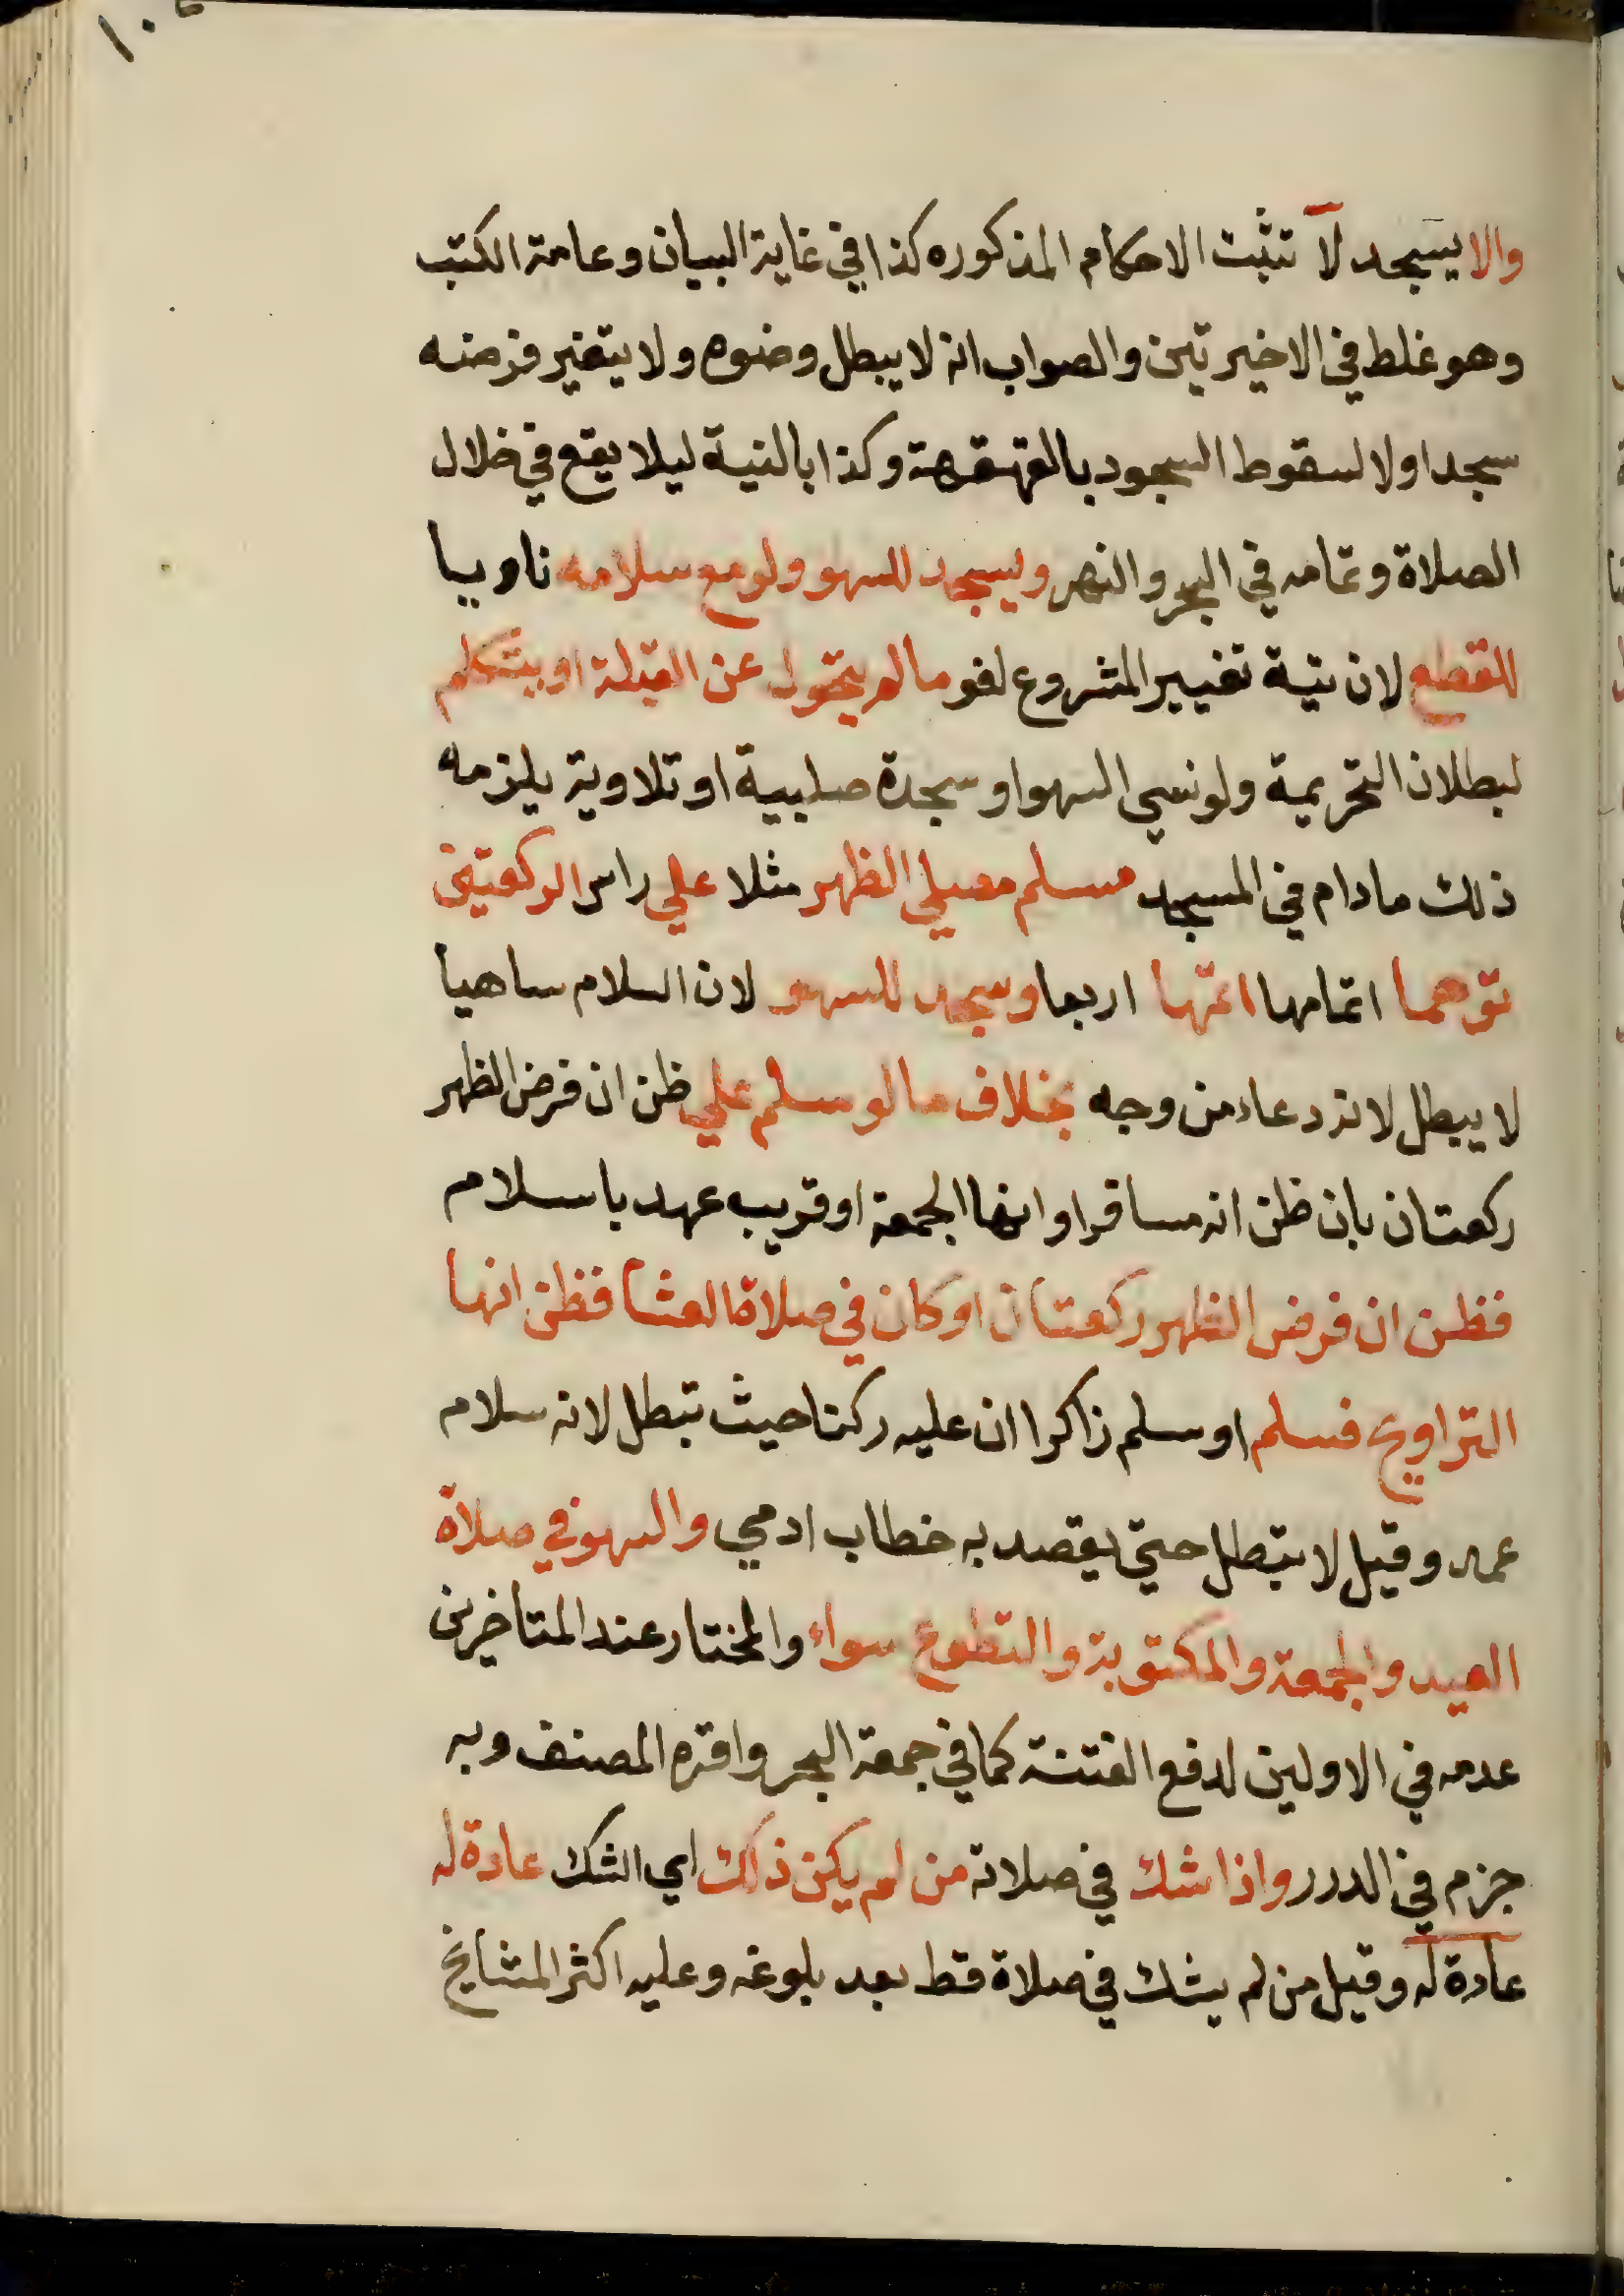 والا يسجد لا تثبت الاحكام المذكوره كذا في غاية البيان وعامة الكتب
وهو غلط في الاخيرتين والصواب انه لا يبطل وضوه ولا يتغير فرضه
سجد اولا لسقوط السجود بالقهقهة وكذا بالنية ليلا يقع في خلال
الصلاة وتمامه في البحر والنهر ويسجد للسهو ولو مع سلامه ناويا
للقطع لان نية تغيير المشروع لغو ما لم يتحول عن القبلة او يتكلم
لبطلان التحريمة ولو نسي السهو او سجدة صلبية او تلاوية يلزمه
ذلك ما دام في المسجد مسلم مصلي الظهر مثلا علي راس الركعتين
توهما اتمامها اتمها اربعا وسجد للسهو لان السلام ساهيا
لا يبطل لانه دعاء من وجه بخلاف ما لو سلم علي ظن ان فرض الظهر
ركعتان بان ظن انه مسافرا وانها الجمعة او قريب عهد باسلام
فظن ان فرض الظهر ركعتان او كان في صلاة العشا فظن انها
التراويح فسلم او سلم ذاكرا ان عليه ركنا حيث تبطل لانه سلام
عمد وقيل لا تبطل حتي يقصد به خطاب ادمي والسهو في صلاة
العيد والجمعة والمكتوبة والتطوع سواء والمختار عند المتاخرين
عدمه في الاولين لدفع الفتنة كما في جمعة البحر واقره المصنف وبه
جزم في الدرر واذا شك في صلاته من لم يكن ذلك اي الشك عادة له
عادة له وقيل من لم يشك في صلاة قط بعد بلوغه وعليه اكثر المشايخ